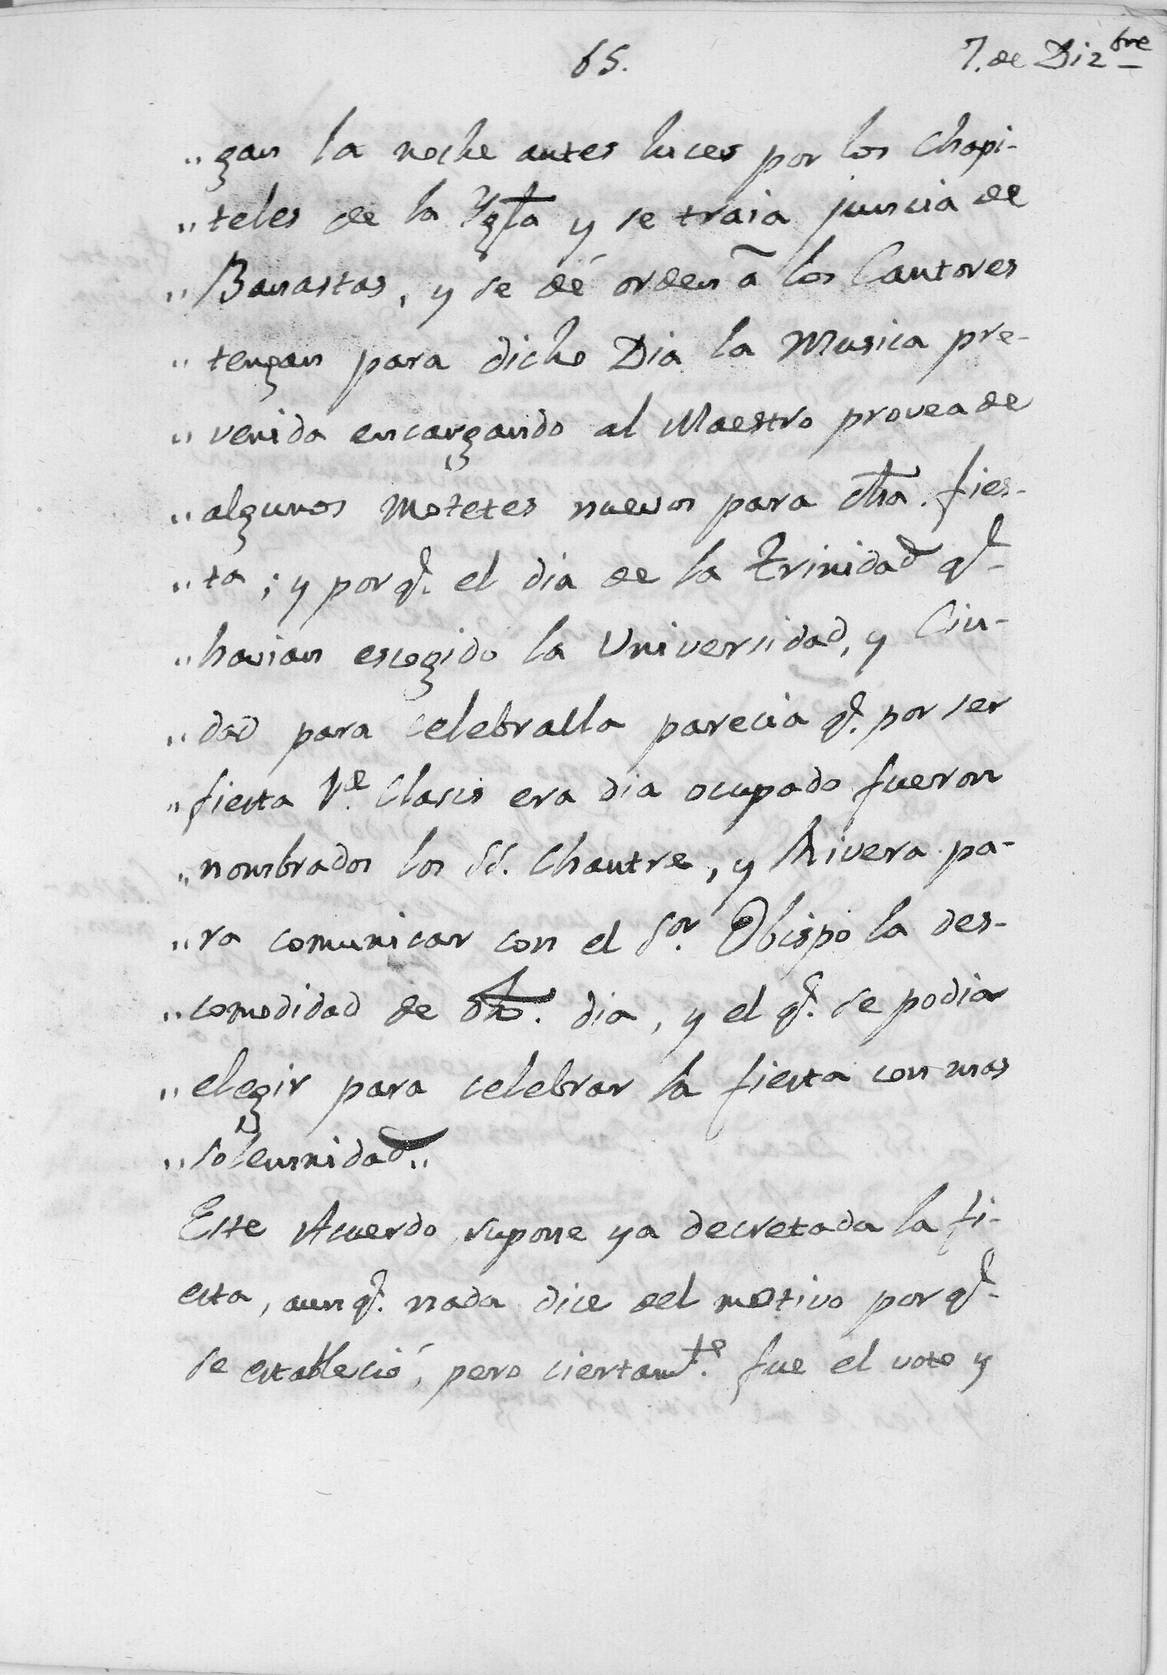 65.
7. de Diz<sup>bre</sup>
„gan la noche antes luces por los Chapi-
„teles de la Ygla y se traia juncia de
„Banastas, y se dé orden à los Cantores
„tengan para dicho Dia la Musica pre-
„venida encargando al Maestro provea de
„algunos Motetes nuevos para dha. fies-
„ta; y porq. el dia de la Trinidad q.
„havian escogido la Universidad, y Ciu-
„dad para celebralla parecia q. por ser
„fiesta 1.ª Clasis era dia ocupado fueron
„nombrados los SS. Chantre, y Rivera pa-
„ra comunicar con el S.or Obispo la des-
„comodidad de dho. dia, y el q. se podia
„elegir para celebrar la fiesta con mas
„solemnidad„
Este Acuerdo supone ya decretada la fi-
esta, aunq. nada dice del motivo porq.
se estableció, pero ciertam.te fue el voto y